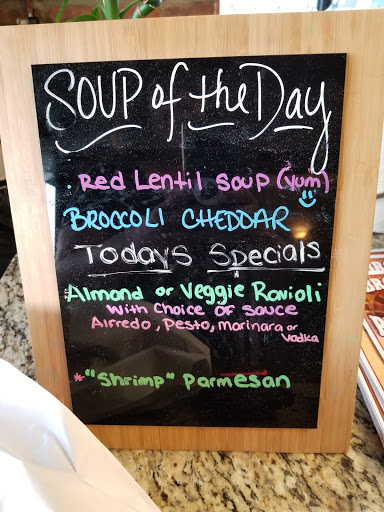 SOUP of the Day
. Red Lentil Soup (yum)
BROCCOLI CHEDDAR
Todays Specials
*Almond or Veggie Ravioli
With Choice of Sauce
Alfredo, Pesto, Marinara or
Vodka
*"Shrimp" Parmesan